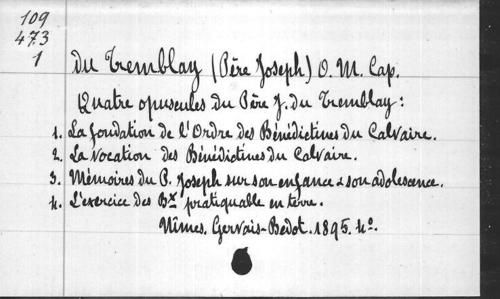 109
473
1
du Tremblay (Père Joseph) O. M. Cap.
Quatre opuscules du Père J. du Tremblay :
1. La fondation de l'Ordre des Bénédictines du Calvaire.
2. La Vocation des Bénédictines du Calvaire.
3. Mémoires du P. Joseph sur son enfance & son adolescence.
4. L'exercice des Bx pratiquable en terre.
Nîmes. Gervais-Bedot. 1895. 4o.